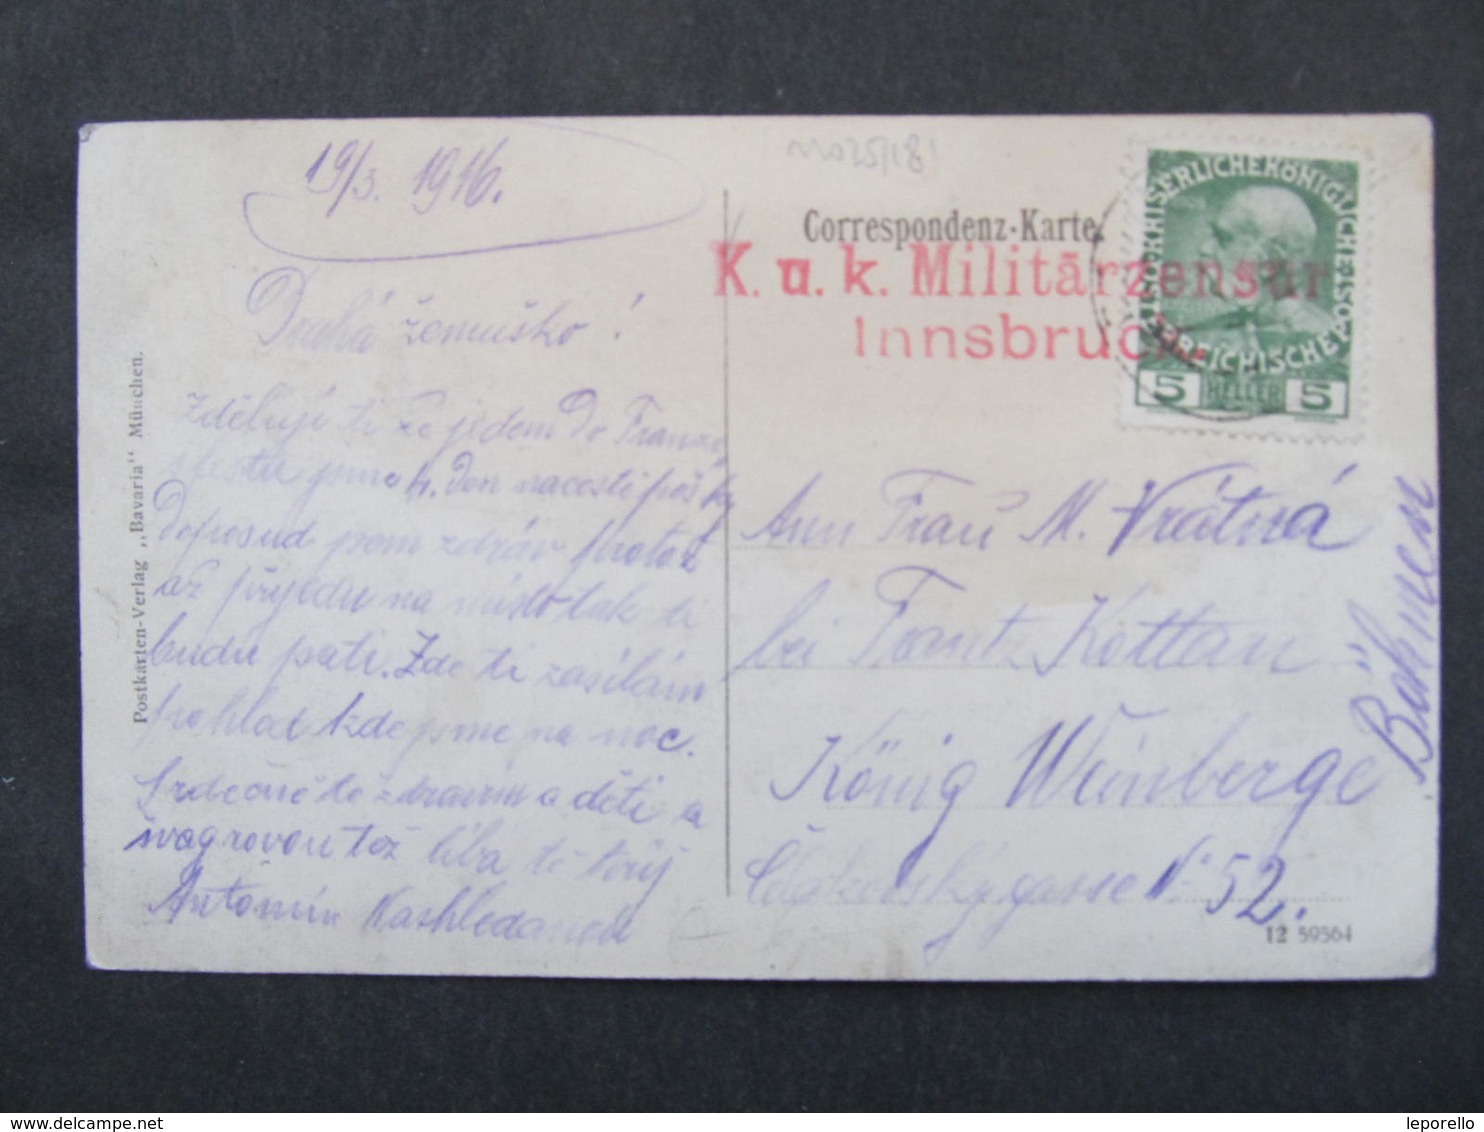 19/3. 1916.
Drahá ženuško!
Zděluji ti že jedem do Franzes
festu jsme 4. den na cestě
Doposud jsem zdráv protož
až přijedu na místo tak ti
budu psáti. Zde ti zasílám
pohled kde jsme na noc.
Srdečně tě zdravím a děti a
švagrovou též líbá tě tvůj
Antonín
Postkarten-Verlag „Bavaria“ München.
Correspondenz-Karte.
K. u. k. Militärzensur
Innsbruck
KAISERLICHE KÖNIGLICHE ÖSTERREICHISCHE POST
5 HELLER 5
Ann Frau M. Vrátná
bei Frant. Kottan
König Weinberge
N: 52.
Böhmen
12 59564
delcampe.net
leporello